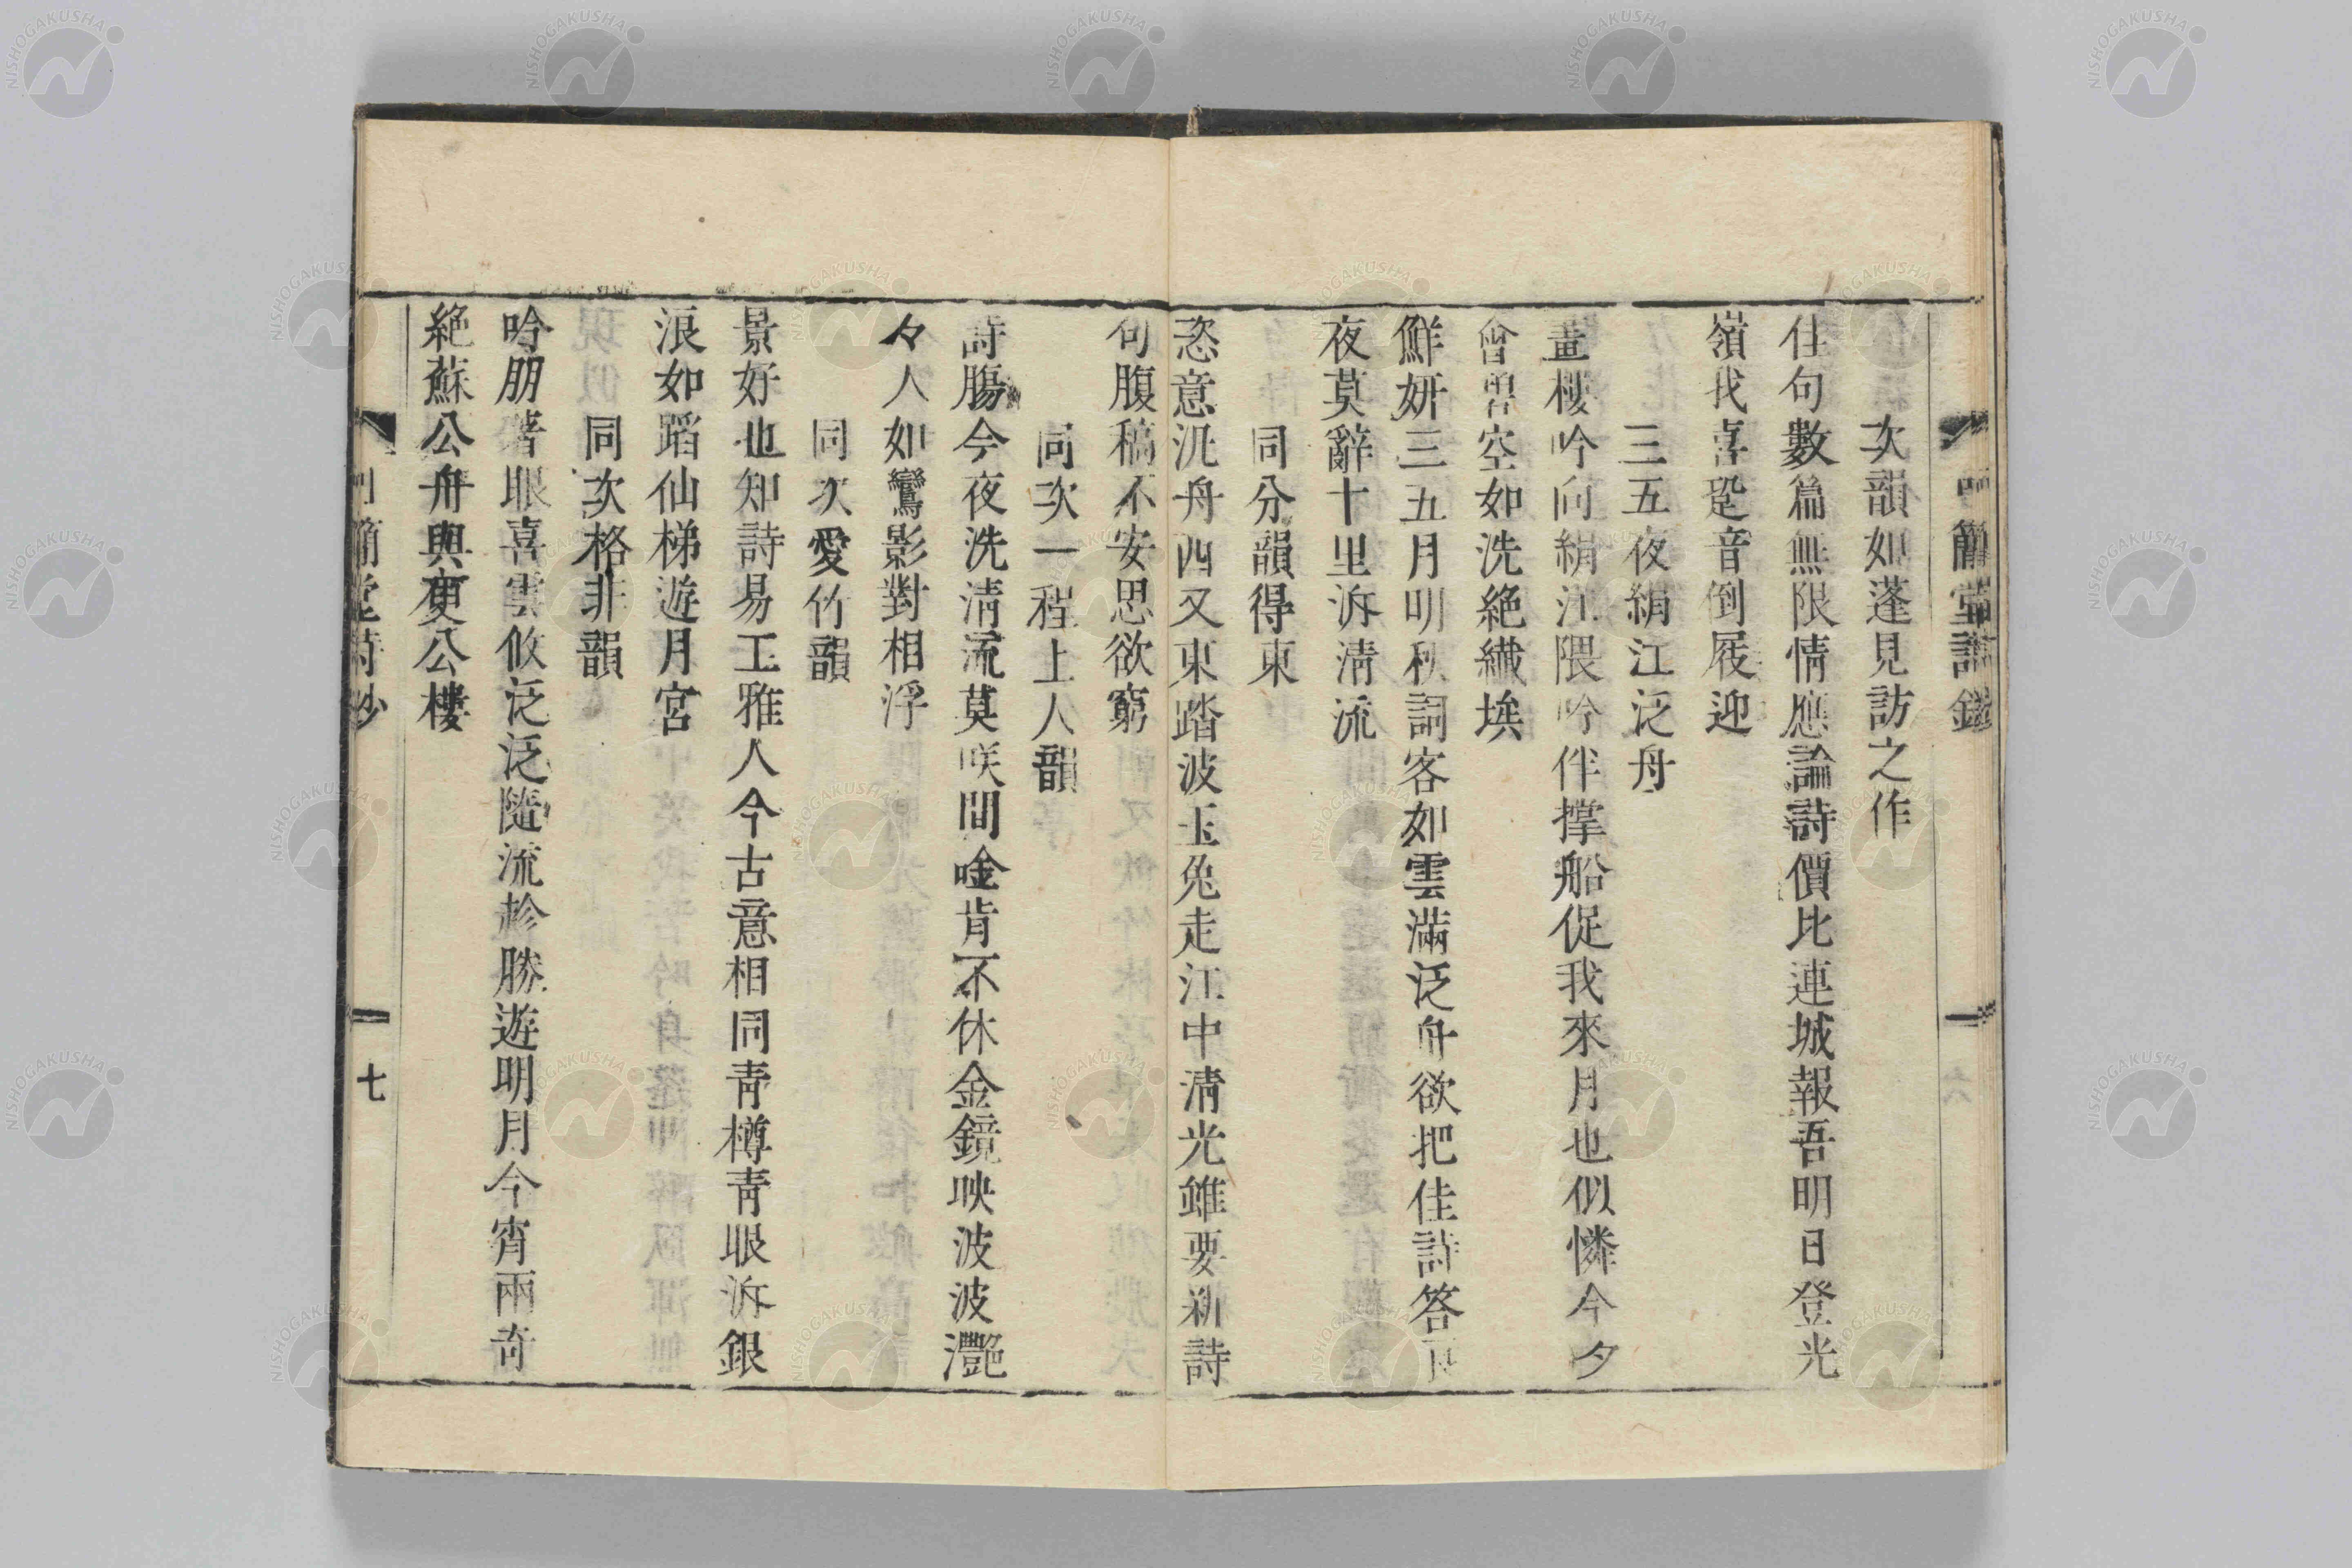 次韻如蓬見訪之作
佳句數篇無限情應論詩價比連城報吾明日登光
嶺我喜跫音倒屐迎
三五夜絹江泛舟
畫樓吟向絹江隈吟伴撑船促我來月也似憐今夕
會碧空如洗絶纎埃
鮮妍三五月明秋詞客如雲滿泛舟欲把佳詩答
夜莫辭十里泝淸流
同分韻得東
恣意汎舟西又東踏波玉兔走江中淸光雖要新詩
句腹稿不安思欲窮
同次一程上人韻
詩膓今夜洗淸流莫咲間唫肯不休金鏡映波波灔
々人如鸞影對相浮
同次愛竹韻
景好也知詩易工雅人今古意相同靑樽靑眼泝銀
浪如蹈仙梯遊月宮
同次格非韻
吟朋著眼喜雲攸泛泛隨流趁勝遊明月今宵兩奇
絶蘇公舟與庾公樓
七
NISHOGAKUSHA